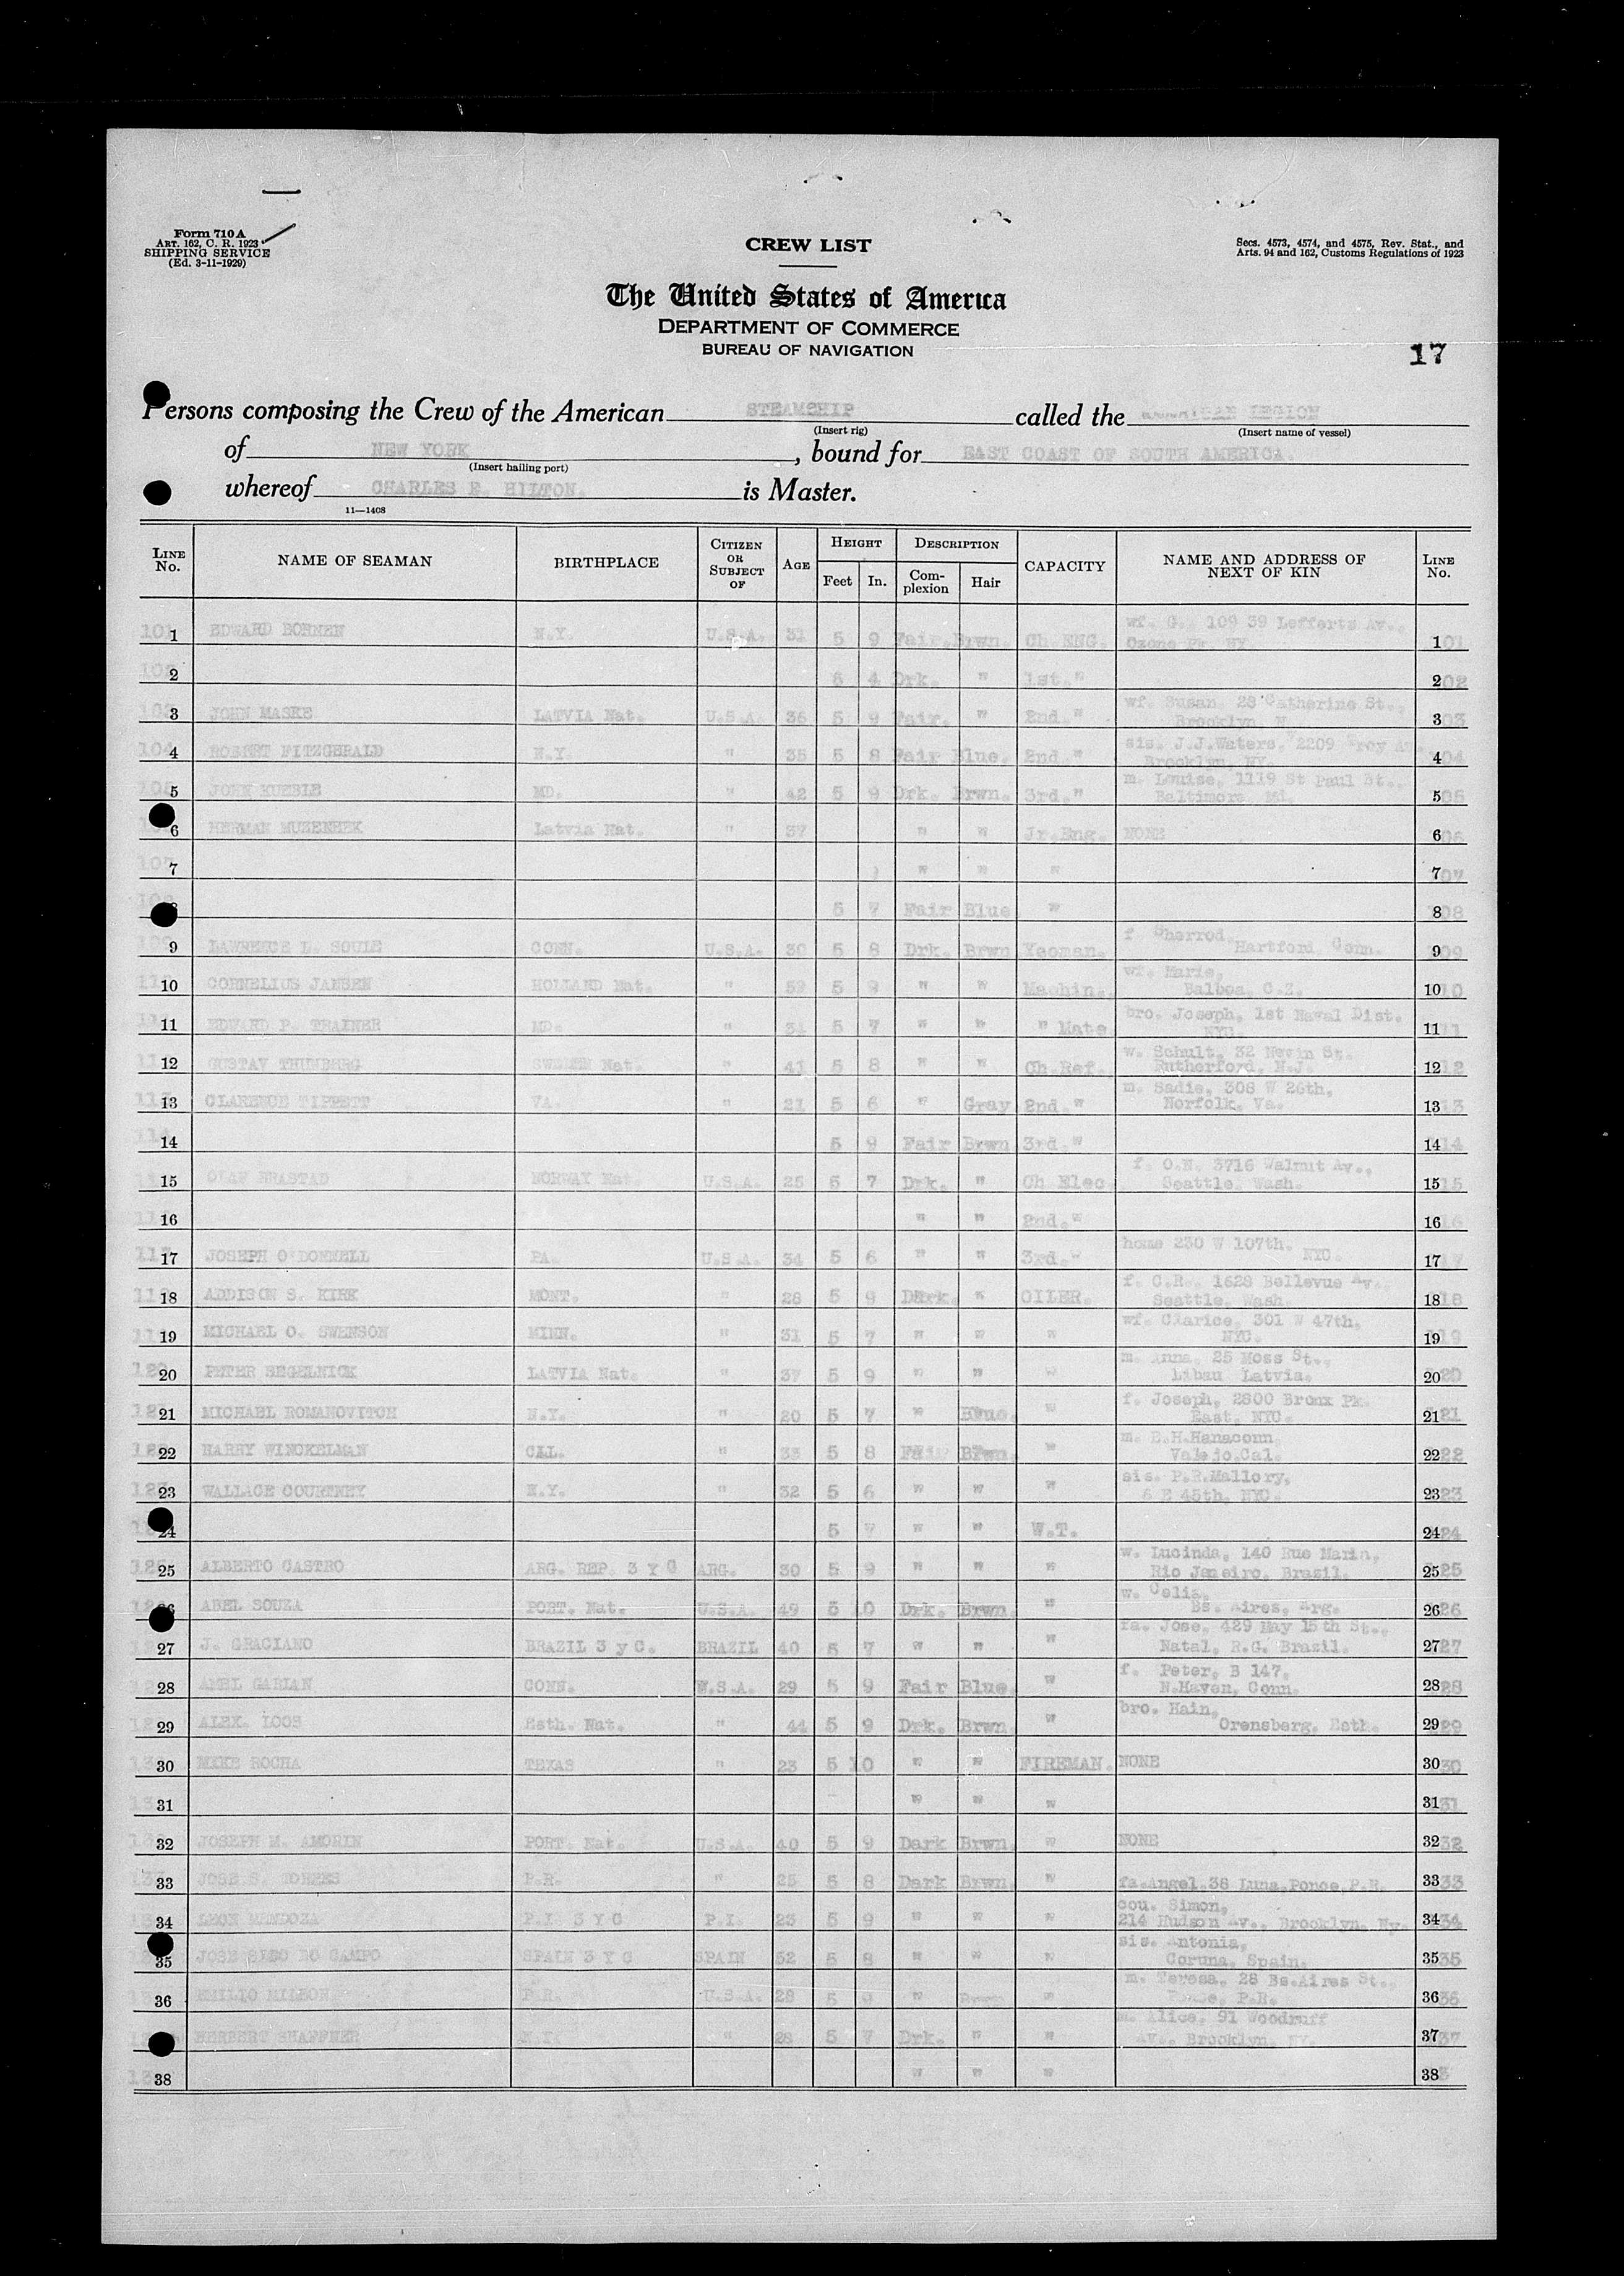 Form 710 A
ART. 162, C. R. 1923
SHIPPING SERVICE
(Ed. 3-11-1929)
CREW LIST
Secs. 4573, 4574, and 4575, Rev. Stat., and
Arts. 94 and 162, Customs Regulations of 1923
The United States of America
DEPARTMENT OF COMMERCE
BUREAU OF NAVIGATION
17
Persons composing the Crew of the American STEAMSHIP called the LEGION
(Insert rig) (Insert name of vessel)
of NEW YORK, bound for EAST COAST OF SOUTH AMERICA.
(Insert hailing port)
whereof CHARLES E. HILTON. is Master.
11—1408
LINE No. NAME OF SEAMAN BIRTHPLACE CITIZEN OR SUBJECT OF AGE HEIGHT Feet In. DESCRIPTION Complexion Hair CAPACITY NAME AND ADDRESS OF NEXT OF KIN LINE No.
1 EDWARD N.Y. U.S.A. 31 5 9 Fair. Brwn. Ch.ENG. wf. G. 109 39 Lefferts Av., Ozone Pk. NY. 1
2 6 4 Drk. " 1st." 2
3 JOHN MASKE LATVIA Nat. U.S.A. 36 5 9 Fair. " 2nd." wf. Susan. 28 Catherine St., Brooklyn. 3
4 ROBERT FITZGERALD N.Y. " 35 5 8 Fair Blue. 2nd." sis. J.J.Waters. 2209 Troy Brooklyn, NY. 4
5 JOHN KUEBLE MD. " 42 5 9 Drk. Brwn. 3rd." m. Louise, 1119 St Paul St., Baltimore Md. 5
6 HERMAN Latvia Nat. " 37 " " Jr.Eng. NONE 6
7 " " " 7
8 5 7 Fair Blue " 8
9 LAWRENCE L. SOULE CONN. U.S.A. 30 5 8 Drk. Brwn Yeoman. f. Sherrod, Hartford, Conn. 9
10 CORNELIUS JANSEN HOLLAND Nat. " 52 5 9 " " Machin. wf. Marie, Balboa, C.Z. 10
11 EDWARD P. TRAINER MD. " 5 7 " " " Mate bro. Joseph, 1st Naval Dist. NYC. 11
12 GUSTAV THUNBERG SWEDEN Nat. " 41 5 8 " " Ch.Ref. w. Schult, 32 St. Rutherford, N.J. 12
13 CLARENCE TIPPETT VA. " 21 5 6 " Gray 2nd." m. Sadie, 308 W 26th, Norfolk, Va. 13
14 5 9 Fair Brwn 3rd." 14
15 OLAF NORWAY Nat. U.S.A. 25 5 7 Drk. " Ch Elec f. O.N. 3716 Walnut Av., Seattle, Wash. 15
16 " " 2nd." 16
17 JOSEPH O'DONNELL PA. U.S.A. 34 5 6 " " 3rd." home 230 W 107th, NYC. 17
18 ADDISON S. KIRK MONT. " 28 5 9 Dark. " OILER. f. C.R. 1628 Bellevue Av., Seattle, Wash. 18
19 MICHAEL O. SWENSON MINN. " 31 5 7 " " " wf. Clarice, 301 W 47th, NYC. 19
20 PETER SEGELNICK LATVIA Nat. " 37 5 9 " " " m. Anna, 25 Moss St., Libau Latvia. 20
21 MICHAEL ROMANOVITCH N.Y. " 20 5 7 " Blue. " f. Joseph, 2800 Bronx Pk. East, NYC. 21
22 HARRY WINCKELMAN CAL. " 33 5 8 Fair Brwn. " m. B.H.Hanaconn Valejo,Cal. 22
23 WALLACE COURTNEY N.Y. " 32 5 6 " " " sis. P.R.Mallory, 6 E 45th, NYC. 23
24 5 7 " " W.T. 24
25 ALBERTO CASTRO ARG. REP. 3 Y C ARG. 30 5 9 " " " w. Lucinda, 140 Rue Maria, Rio Janeiro, Brazil. 25
26 ABEL SOUZA PORT. Nat. U.S.A. 49 5 10 Drk. Brwn. " w. Celia, Bs. Aires, Arg. 26
27 J. GRACIANO BRAZIL 3 y C. BRAZIL 40 5 7 " " " fa. Jose, 429 May 15th St., Natal, R.G. Brazil. 27
28 GARIAN CONN. U.S.A. 29 5 9 Fair Blue. " f. Peter, B 147, N.Haven, Conn. 28
29 ALEX. LOOS Esth. Nat. " 44 5 9 Drk. Brwn. " bro. Hain, Orensberg, Esth. 29
30 MIKE ROCHA TEXAS " 23 5 10 " " FIREMAN. NONE 30
31 " " " 31
32 JOSEPH M. AMORIN PORT. Nat. U.S.A. 40 5 9 Dark Brwn. " NONE 32
33 JOSE S. TORRES P.R. " 25 5 8 Dark Brwn. " fa.Angel,38 Luna,Ponce,P.R. 33
34 LEON MENDOZA P.I. 3 Y C P.I. 23 5 9 " " " cou. Simon, 214 Hudson Av., Brooklyn, Ny. 34
35 JOSE DO CAMPO SPAIN 3 Y C SPAIN 52 5 8 " " " sis. Antonia, Coruna, Spain. 35
36 EMILIO P.R. U.S.A. 28 5 9 " Brwn " m. Teresa, 28 Bs.Aires St., Ponce, P.R. 36
37 HERBERT SHAFFNER N.Y. " 28 5 7 Drk. " " m. Alice, 91 Woodruff Av., Brooklyn, NY. 37
38 " " " 38